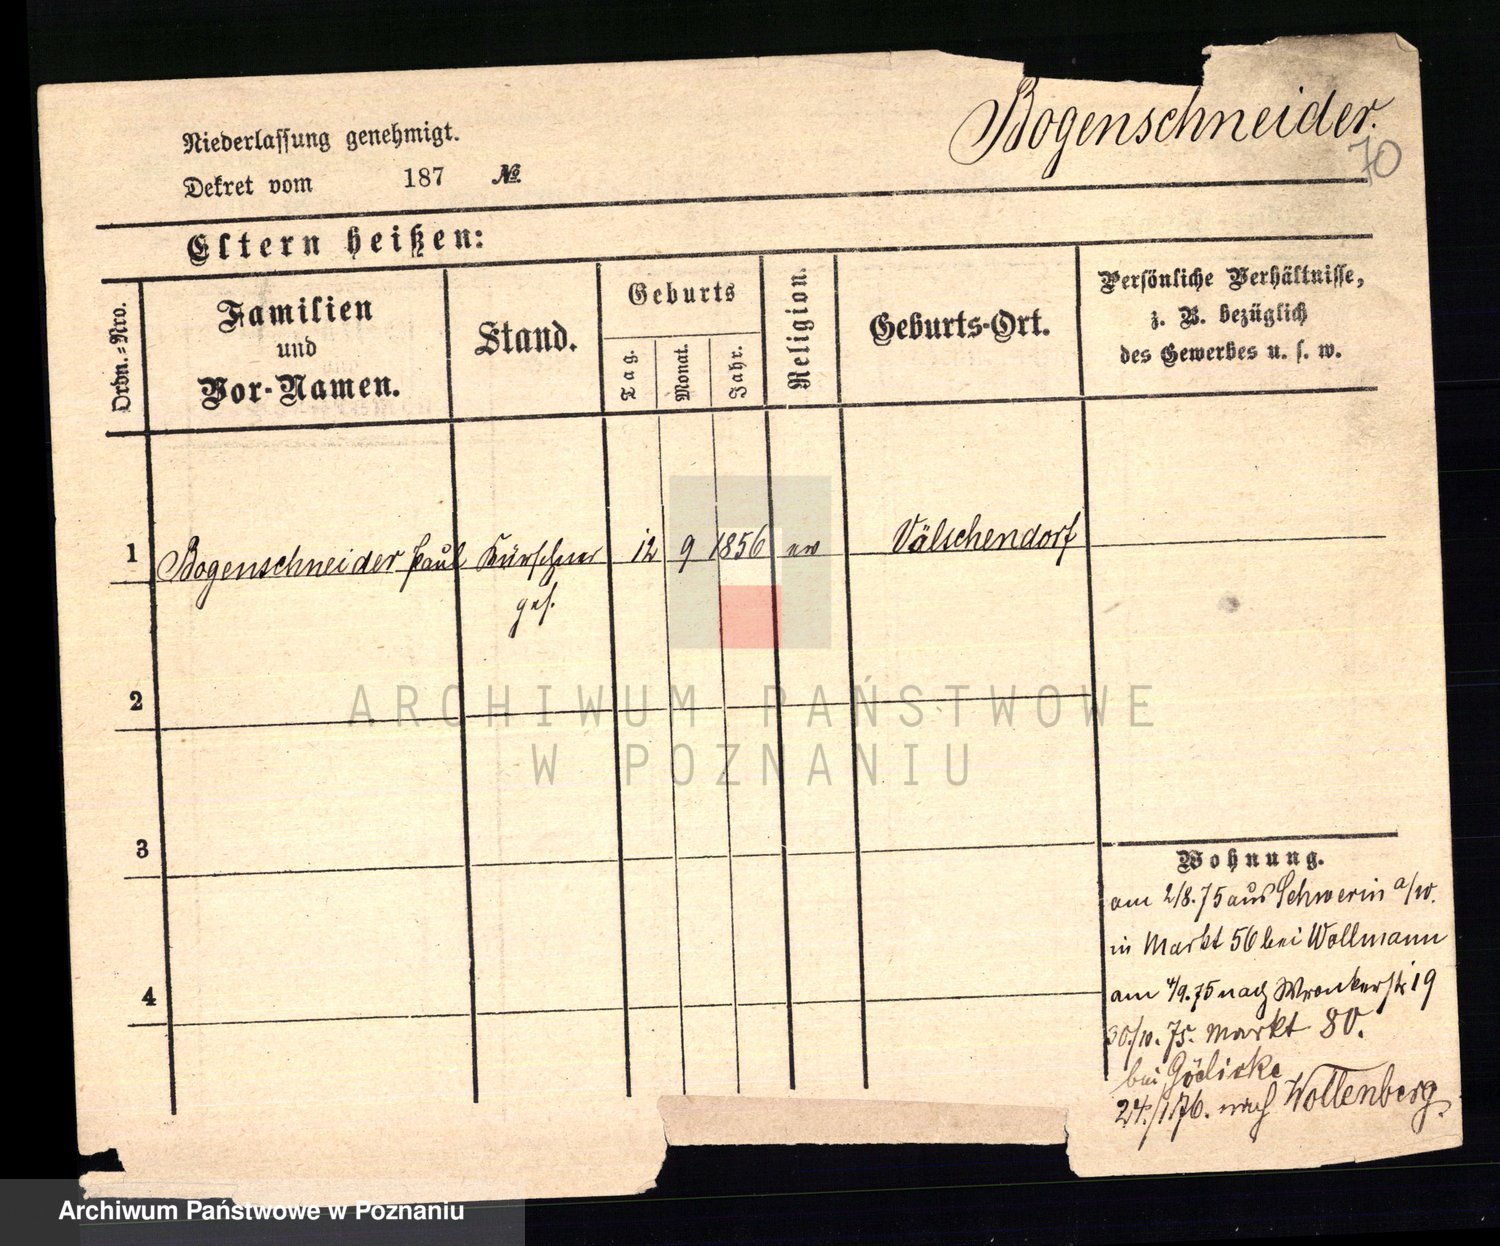 Bogenschneider.
70
Niederlassung genehmigt.
Dekret vom 187 №
Eltern heißen:
Ordn.=Nro.
Familien
und
Vor-Namen.
Stand.
Geburts
Tag.
Monat.
Jahr.
Religion.
Geburts-Ort.
Persönliche Verhältnisse,
z. B. bezüglich
des Gewerbes u. s. w.
1 Bogenschneider Paul Kürschner 12 9 1856 ev Välschendorf
ges.
2
3
4
Wohnung.
am 2/8.75 aus Schwerin a/w.
in Markt 56 bei Wollmann
am 4/9.75 nach Wronkerstr 19
30./10. 75. Markt 80.
bei Gödicke
24./1 76. nach Wollenberg.
ARCHIWUM PAŃSTWOWE
W POZNANIU
Archiwum Państwowe w Poznaniu